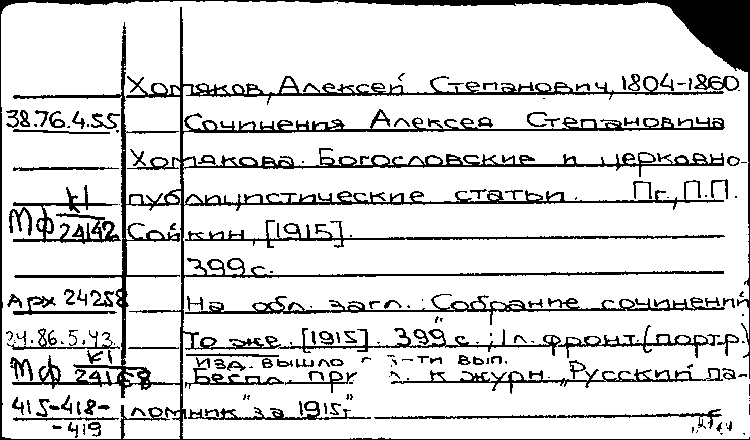 Хомяков, Алексей Степанович, 1804-1860
38.76.4.55 Сочинения Алексея Степановича
Хомякова. Богословские и церковно-
К1 публицистические статьи. Пг., П.П.
Мф 24142 Сойкин, [1915].
399 с.
Арх 24258 На обл. загл.: Собрание сочинений
24.86.5.43 То же. [1915]. 399 с., 1 л. фронт. (портр.)
К1 изд. вышло в -ти вып.
Мф 24168 "Беспл. к журн. "Русский па-
415-418- ломник" за 1915 г.
-419